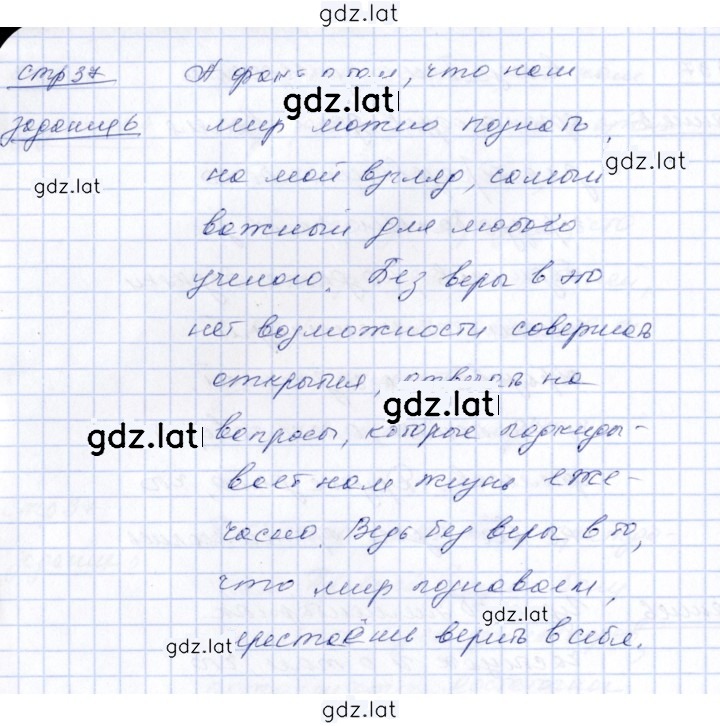 gdz.lat
стр 37
А фант о том, что наш
gdz.lat
задание 6
мир можно познать,
gdz.lat
gdz.lat
на мой взгляд, самый
важный для любого
ученого. Без веры в это
нет возможности совершать
открытия, отвечать на
gdz.lat
gdz.lat
вопросы, которые подкиды-
вает нам жизнь еже-
часно. Ведь без веры в то,
что мир познаваем,
gdz.lat
gdz.lat
перестаёшь верить в себя.
gdz.lat